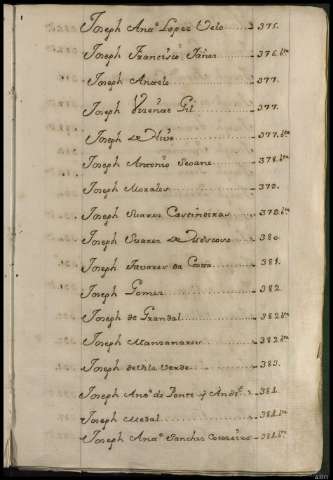 Joseph Anᵒ. Lopez Velo ... 375.
Joseph Francisco Yañez ... 376. bᵗᵃ
Joseph Anselo ... 377.
Joseph Gil ... 377.
Joseph de ... 377. bᵗᵃ
Joseph Antonio Seoane ... 378. bᵗᵃ
Joseph Morales ... 379.
Joseph Suarez Castineiras ... 379. bᵗᵃ
Joseph Suarez de Moscoso ... 380.
Joseph Tavares da Costa ... 381.
Joseph Gomez ... 382.
Joseph de Grandal ... 382. bᵗᵃ
Joseph Manzanares ... 382. bᵗᵃ
Joseph de Vila Verde ... 383.
Joseph Anᵒ. de Ponte y Andᵉ. ... 384.
Joseph Medal ... 384. bᵗᵃ
Joseph Anᵒ. Sanchez ... 384. bᵗᵃ